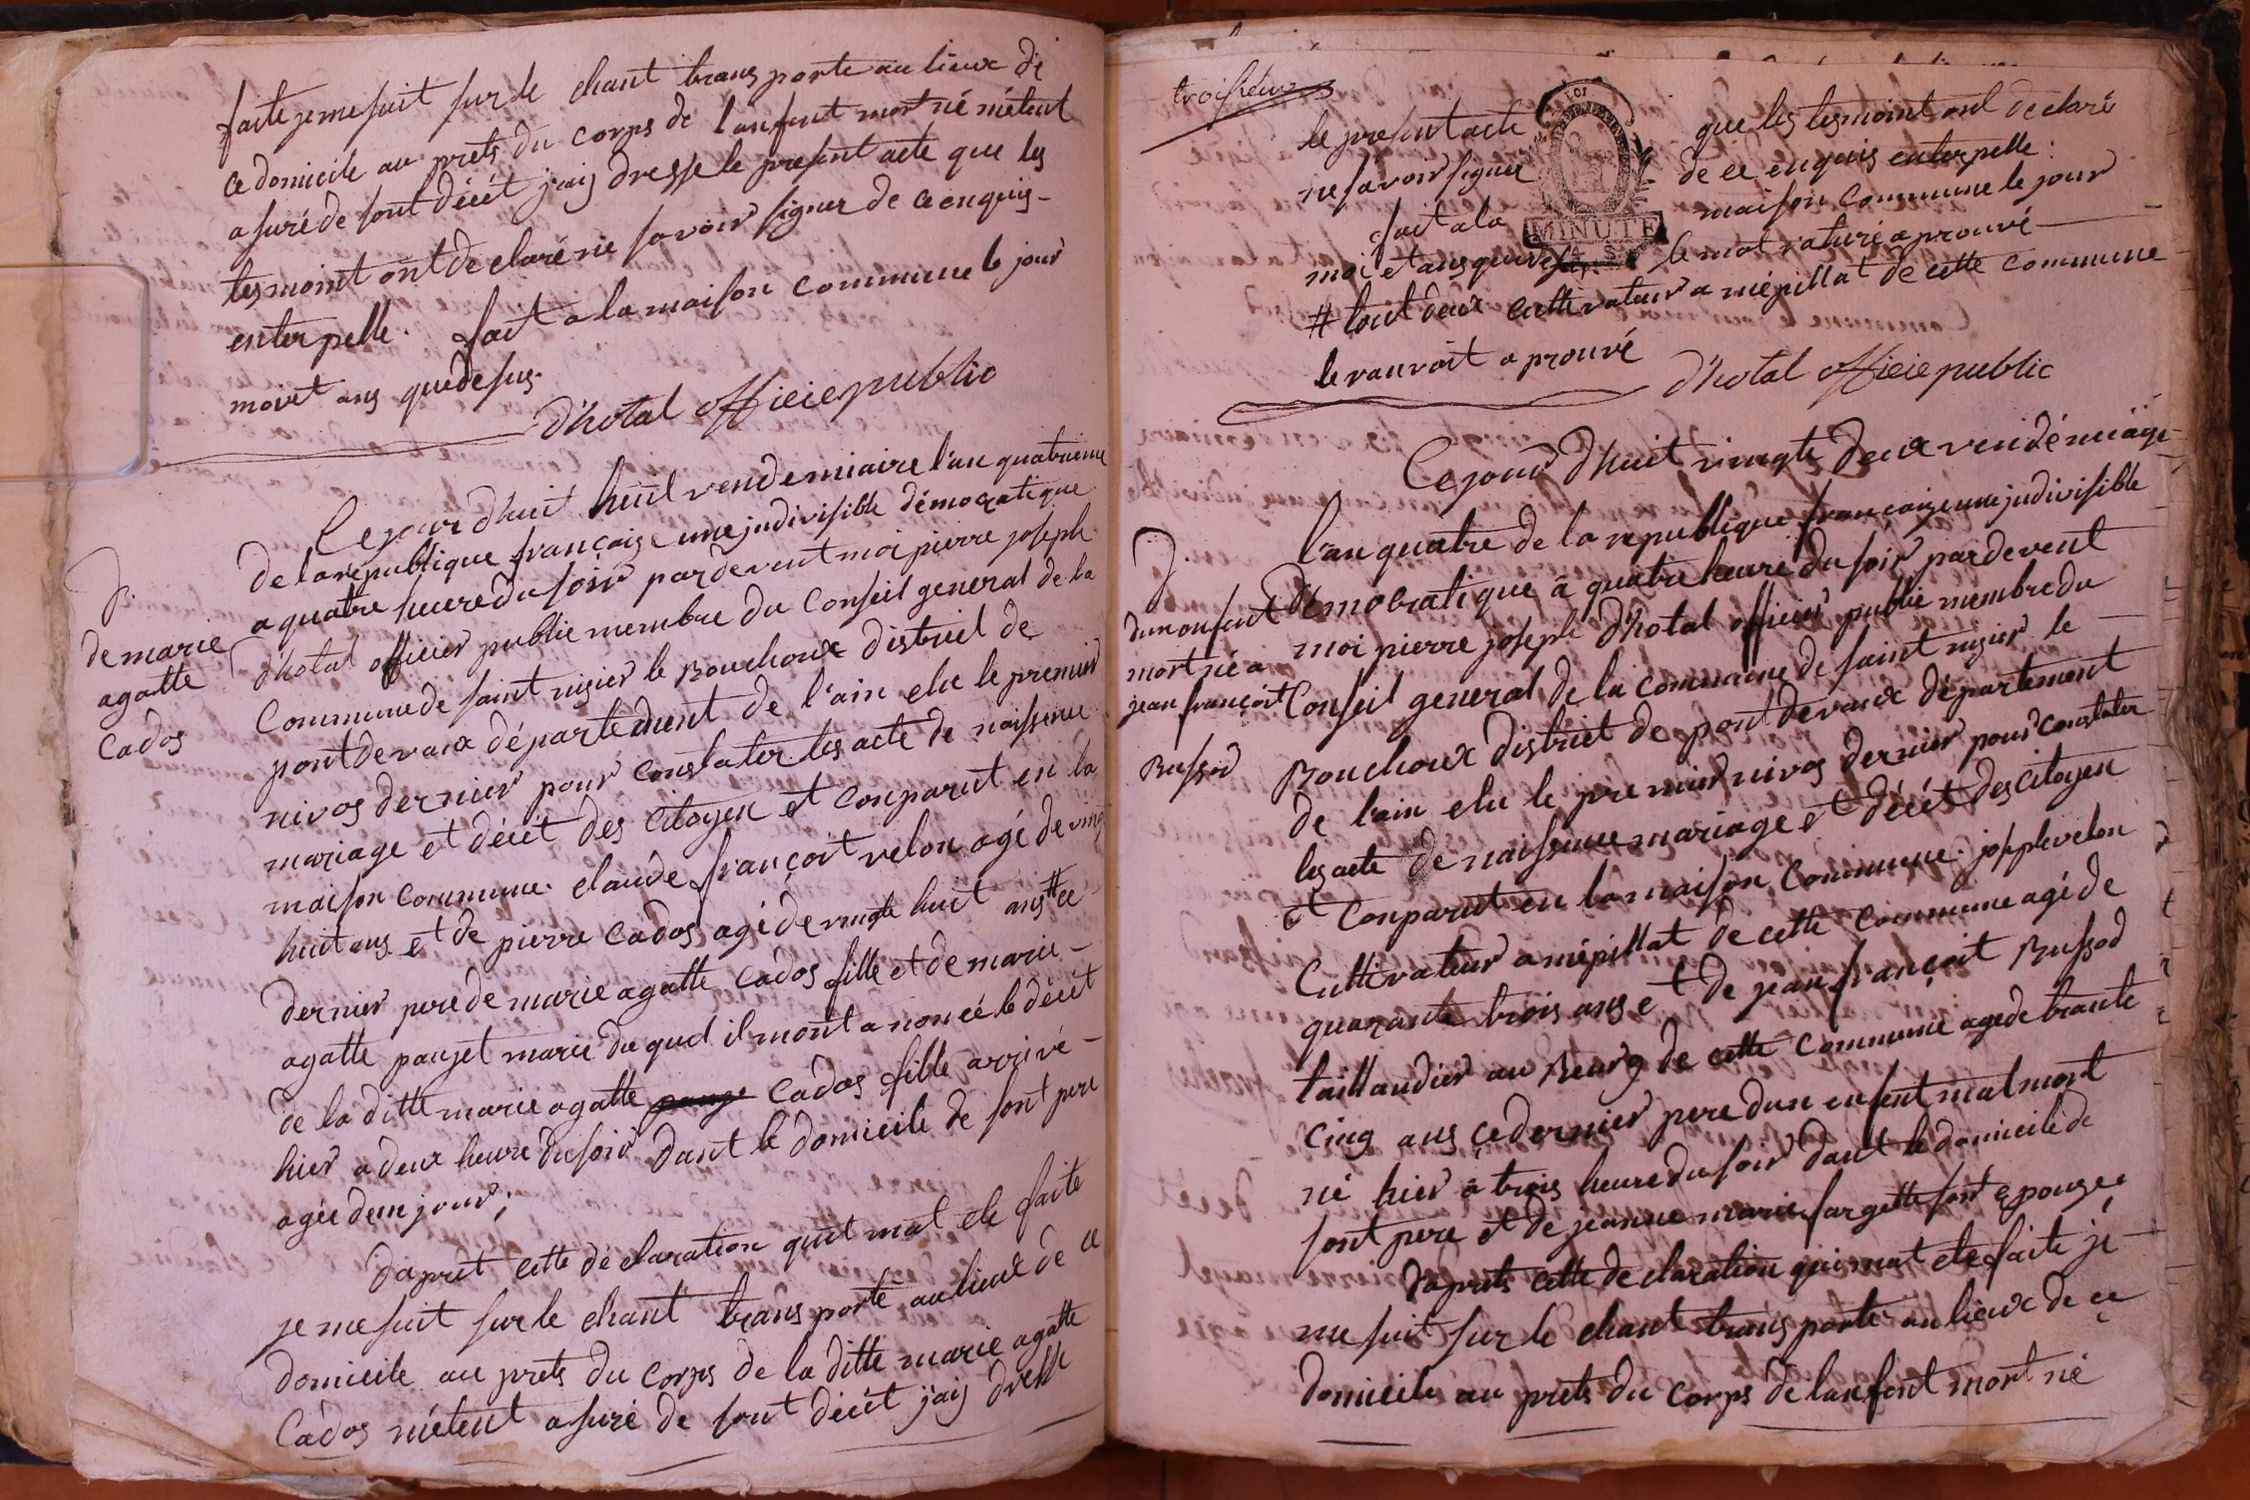 faite je me suit sur le chant trans porte au lieux de
ce domicile au prets du corps de lanfent mort né métent
asuré de sont décét jais dresse le present acte que les
tesmoint ont declaré ne savoir signer de ce enquis-
enterpelle. fait a la maison commune le jour
moi et ans que desus.
d'hotal officiepublic
Ce jour dhuit huit vendemiaire l'an quatrieme
de la republique françoise une judivisible démocratique
a quatre heure du soir par devent moi pierre joseph
d'hotal officier public membre du Conseil general de la
Commune de saint nizier le Bouchoux distriel de
pont de vaux département de l'ain elu le premier
nivos dernier pour constater les acte de naissence
mariage et décét des citoyen et conparut en la
maison commune. claude françoit velon agé de ving
huit ans et de pierre Cados agé de vingte huit ans # ce
dernier pere de marie agatte Cados fille et de marie-
agatte pauget marie du quel il mont anoncé le décét
de la ditte marie agatte pauge Cados fille arrivé-
hier a deux heure du soir dant le domicile de sont pere
agée dun jour;
D.
de marie
agatte
Cados
daprét cette déclaration quit mat ete faite
je me suit sur le chant trans porté au lieux de ce
domicile au prets du corps de la ditte marie agatte
Cados métent asuré de sont décét jais dresse
troisieme
le present acte que les tesmoint ont declaré
ne savoir signer de ce enquis enterpelle:
fait a la maison commune le jour
moi et ans que desus. le mot raturé aprouvé
# tout deux cultivateur a mépillat de cette commune
le ranvoit aprouvé
d'hotal officiepublic
LOI
MINUTE
Ce jour dhuit vingte deux vendémiaije
l'an quatre de la republique françaize une judivisible
démocratique à quatre heure du soir par devent
moi pierre joseph d'hotal officier public membre du
Conseil general de la commune de saint nizier le
Bouchoux distriet de pont de vaux département
de l'ain elu le premier nivos dernier pour constater
les acte de naissence mariage et décét des citoyen
et conparut en la maison commune. joseph velon
Cultivateur a mépillat de cette commune agé de
quarante trois ans et de jean françoit Bussod
taillandier au Bourg de cette commune agé de trante
cinq ans ce dernier pere dun enfent mal mort
né hier à trois heure du soir dant le domicile de
sont pere et de jeanne marie fargette sont epouzee
D.
dun anfent
mort né a
jean françoit
Bussod
daprets cette declaration qui mat ete faite je
me suit sur le chant trans porté au lieux de ce
domicile au prets du corps de lanfent mort né